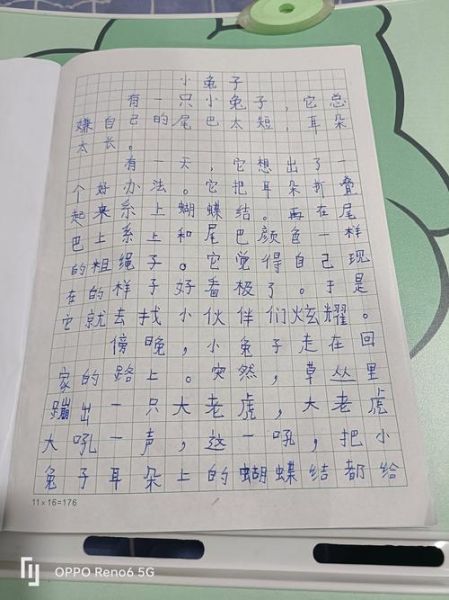 小兔子
有一只小兔子，它总
嫌自己的尾巴太短，耳朵
太长。
有一天，它想出了一
个好办法。它把耳朵折叠
起来系上蝴蝶结。再在尾
巴上系上和尾巴颜色一样
的粗绳子。它觉得自己现
在的样子好看极了。于是
它就去找小伙伴们炫耀。
傍晚，小兔子走在回
家的路上。突然，草丛里
蹦出一只大老虎，大老虎
大吼一声，这一吼，把小
兔子耳朵上的蝴蝶结都给
11×16=176
OPPO Reno6 5G